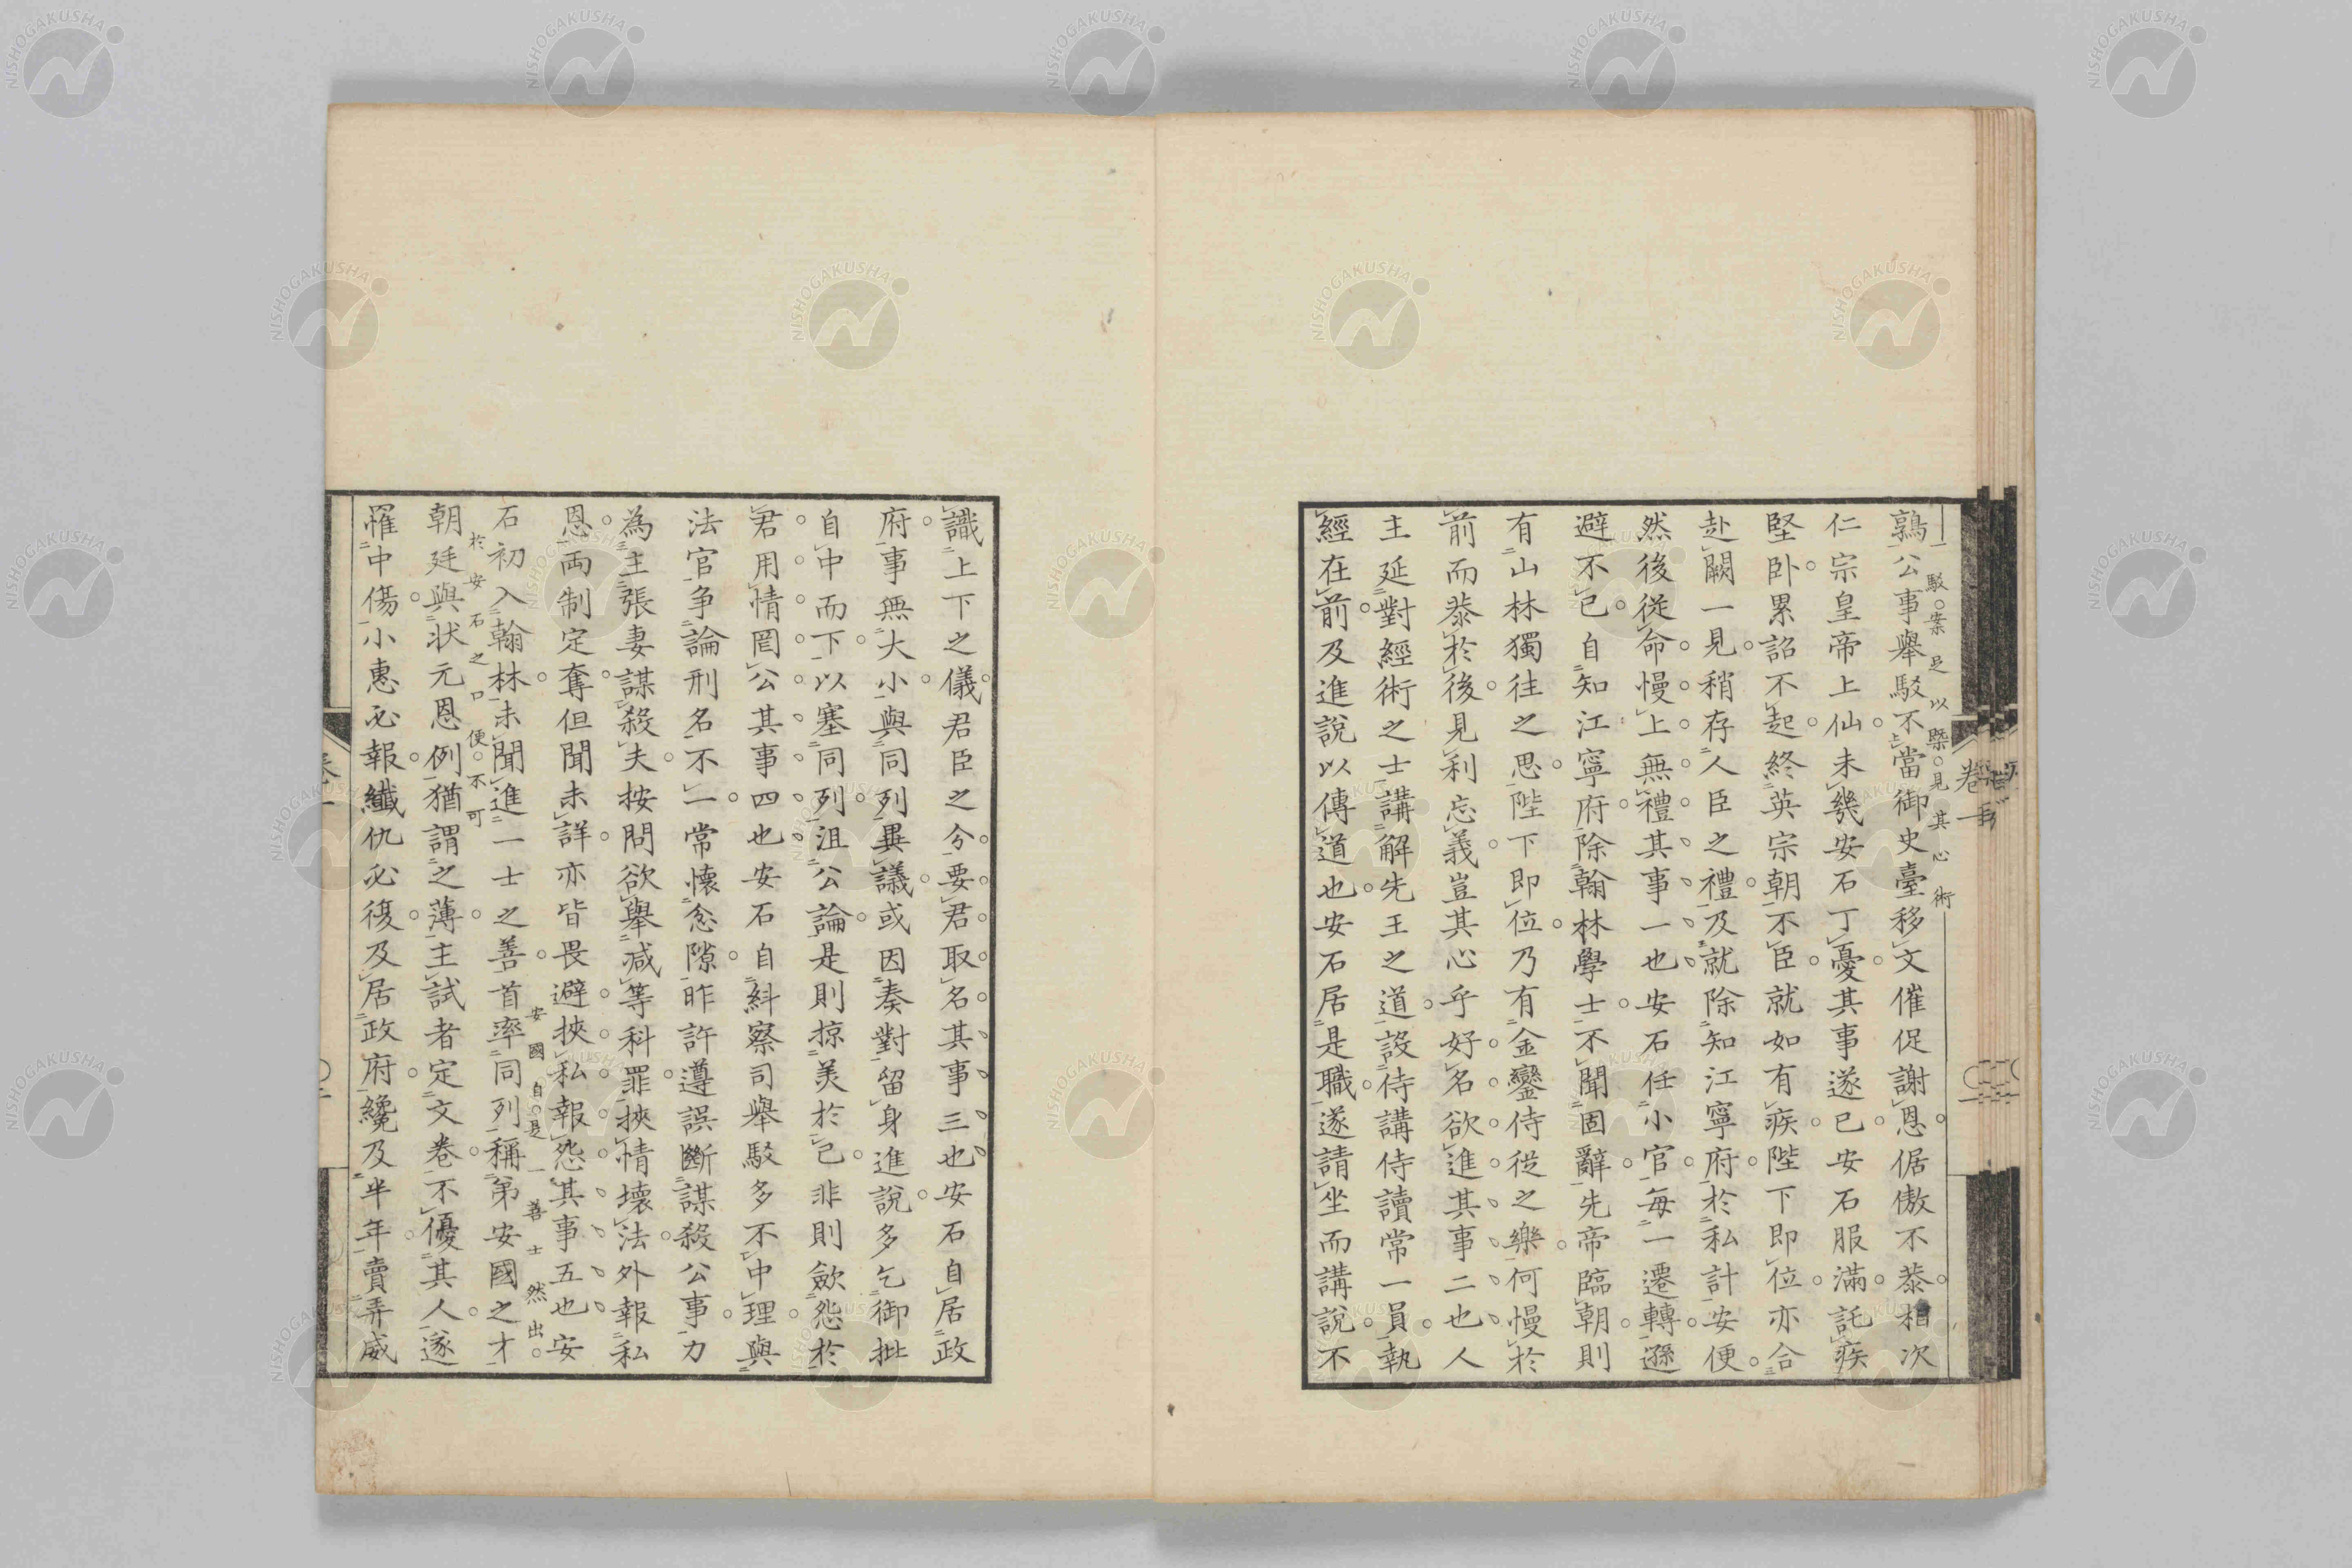 鶉公事舉駁不當御史臺移文催促謝恩倨傲不恭相次
駁案足以槩見其心術
仁宗皇帝上仙未幾安石丁憂其事遂已安石服滿託疾
堅卧累詔不起終英宗朝不臣就如有疾陛下即位亦合
赴闕一見稍存人臣之禮及就除知江寧府於私計安便
然後從命慢上無禮其事一也安石任小官每一遷轉遜
避不已自知江寧府除翰林學士不聞固辭先帝臨朝則
有山林獨往之思陛下即位乃有金鑾侍從之樂何慢於
前而恭於後見利忘義豈其心乎好名欲進其事二也人
主延對經術之士講解先王之道設侍講侍讀常一員執
經在前及進說以傳道也安石居是職遂請坐而講說不
識上下之儀君臣之分要君取名其事三也安石自居政
府事無大小與同列異議或因奏對留身進說多乞御批
自中而下以塞同列沮公論是則掠美於己非則斂怨於
君用情罔公其事四也安石自糾察司舉駁多不中理與
法官爭論刑名不一常懷忿隙昨許遵誤斷謀殺公事力
為主張妻謀殺夫按問欲舉減等科罪挾情壞法外報私
恩兩制定奪但聞未詳亦皆畏避挾私報怨其事五也安
安國自是一善士然出於安石之口便不可
石初入翰林未聞進一士之善首率同列稱弟安國之才
朝廷與狀元恩例猶謂之薄主試者定文卷不優其人遂
罹中傷小惠必報纖仇必復及居政府纔及半年賣弄威
卷
NISHOGAKUSHA